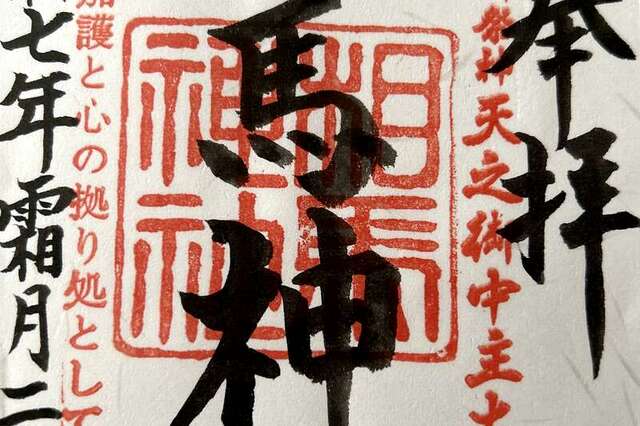 奉拝
祭神天之御中主
相馬
神社
馬神
加護と心の拠り処として
七年霜月二